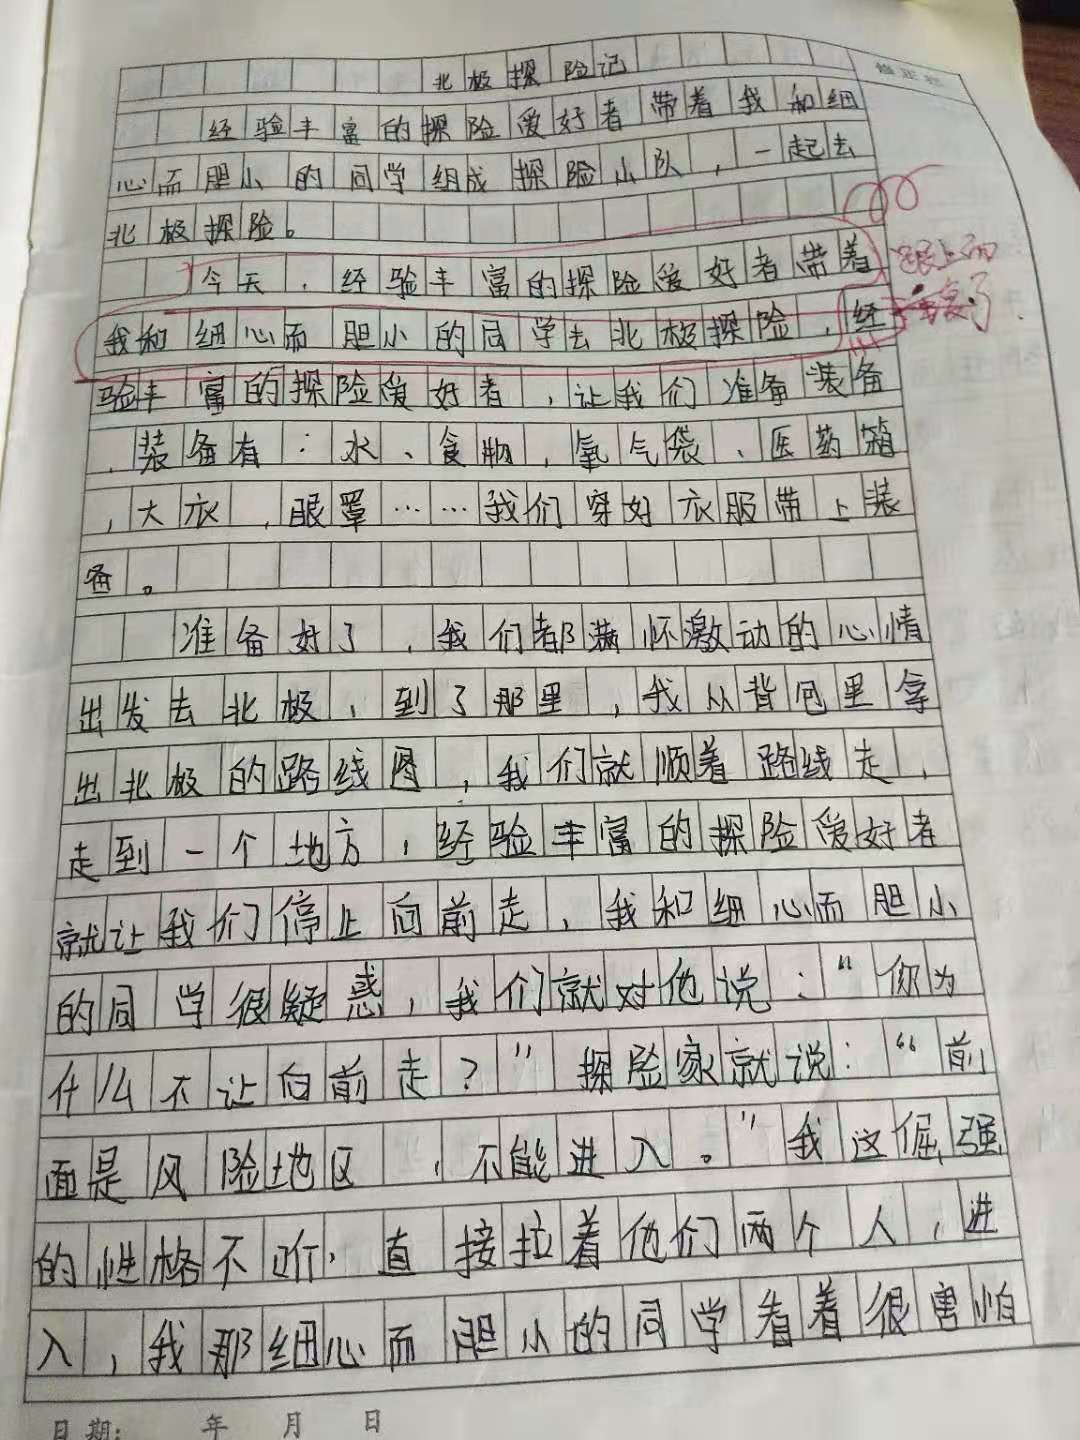 北极探险记
经验丰富的探险爱好者带着我和细
心而胆小的同学组成探险小队，一起去
北极探险。
今天，经验丰富的探险爱好者带着
我和细心而胆小的同学去北极探险，经
验丰富的探险爱好者，让我们准备装备
，装备有：水、食物，氧气袋、医药箱
，大衣，眼罩……我们穿好衣服带上装
备。
准备好了，我们都满怀激动的心情
出发去北极，到了那里，我从背包里拿
出北极的路线图，我们就顺着路线走，
走到一个地方，经验丰富的探险爱好者
就让我们停止向前走，我和细心而胆小
的同学很疑惑，我们就对他说：“你为
什么不让向前走？”探险家就说：“前
面是风险地区，不能进入。”我这倔强
的性格不听，直接拉着他们两个人，进
入，我那细心而胆小的同学看着很害怕
跟上面
重复了
日期： 年 月 日